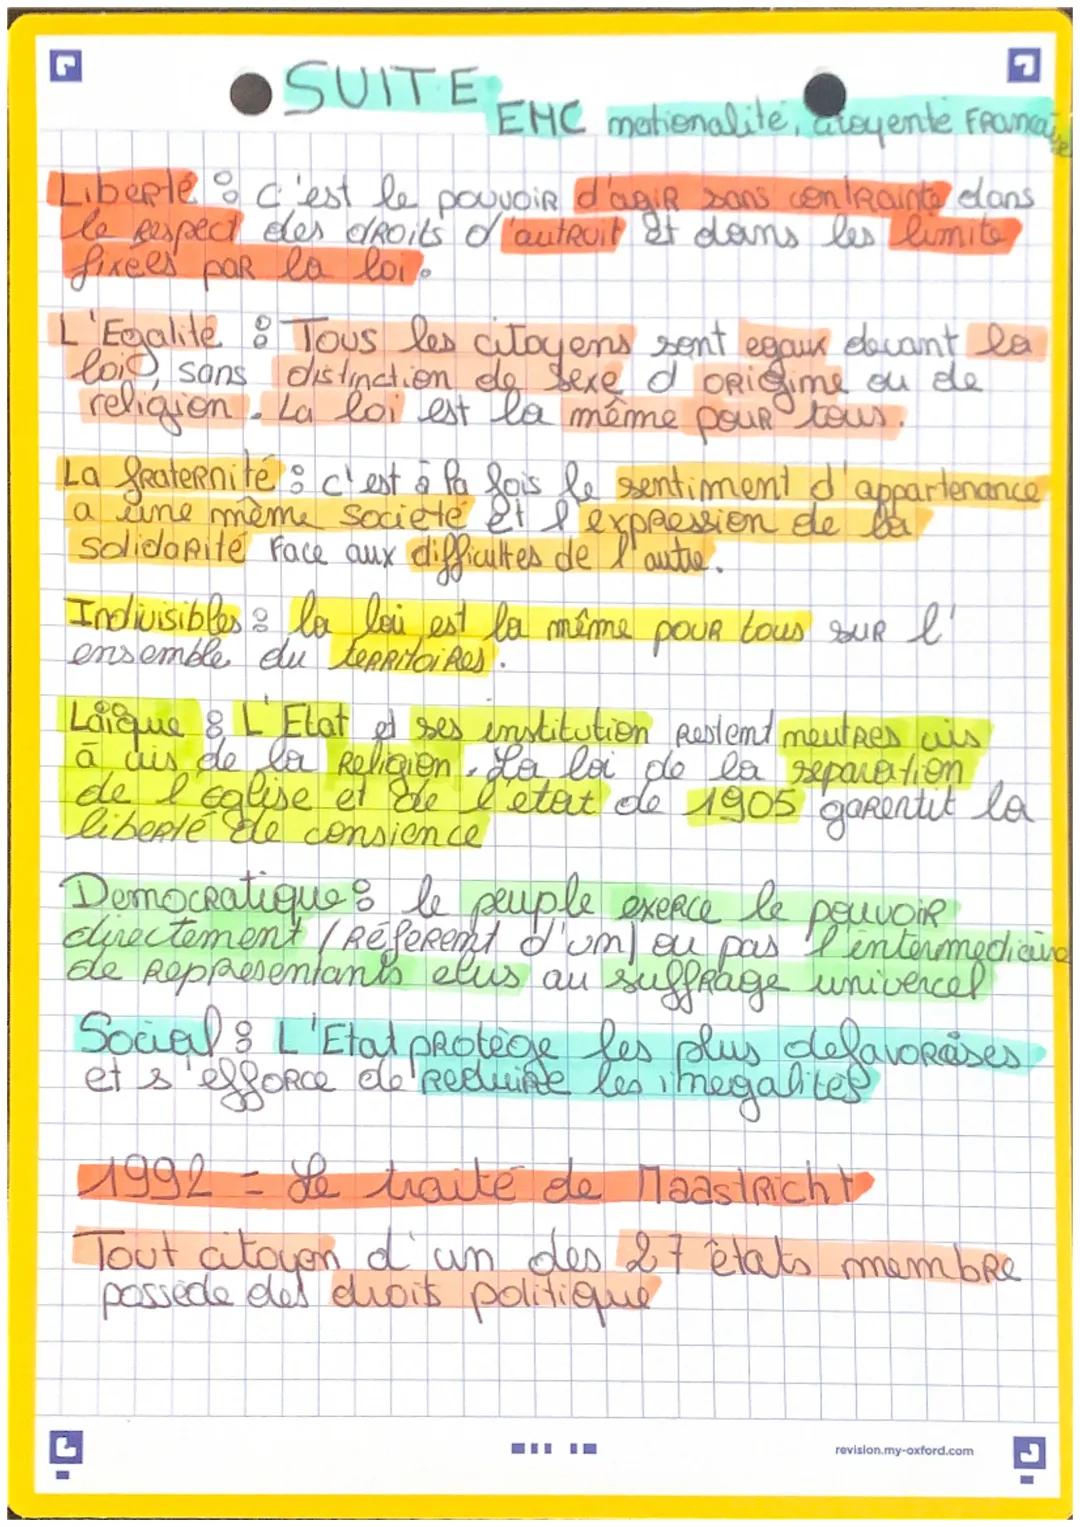 SUITE
EMC nationalité, citoyenté Française
Liberté : c'est le pouvoir d'agir sans contrainte dans
le respect des droits d'autruit et dans les limite
fixées par la loi.
L'Egalité : Tous les citoyens sont egaux devant la
loi, sans distinction de sexe d origine ou de
religion. La loi est la même pour tous.
La fraternité : c'est à la fois le sentiment d'appartenance
a une même societé et l'expression de la
solidarité face aux difficultes de l'autre.
Indivisibles : la loi est la même pour tous sur l'
ensemble du territoires.
Laïque : L'Etat et ses institution restent neutres vis
à vis de la religion. La loi de la séparation
de l'eglise et de l'état de 1905 garentit la
liberté de consience
Democratique : le peuple exerce le pouvoir
directement (Réferent d'um) ou pas l'intermediaire
de representants elus au suffrage univercel
Social : L'Etat protège les plus defavoraises
et s'efforce de reduire les inegalités
1992 = Le traité de Maastricht
Tout citoyen d'un des 27 états membre
possède des droits politique
revision.my-oxford.com